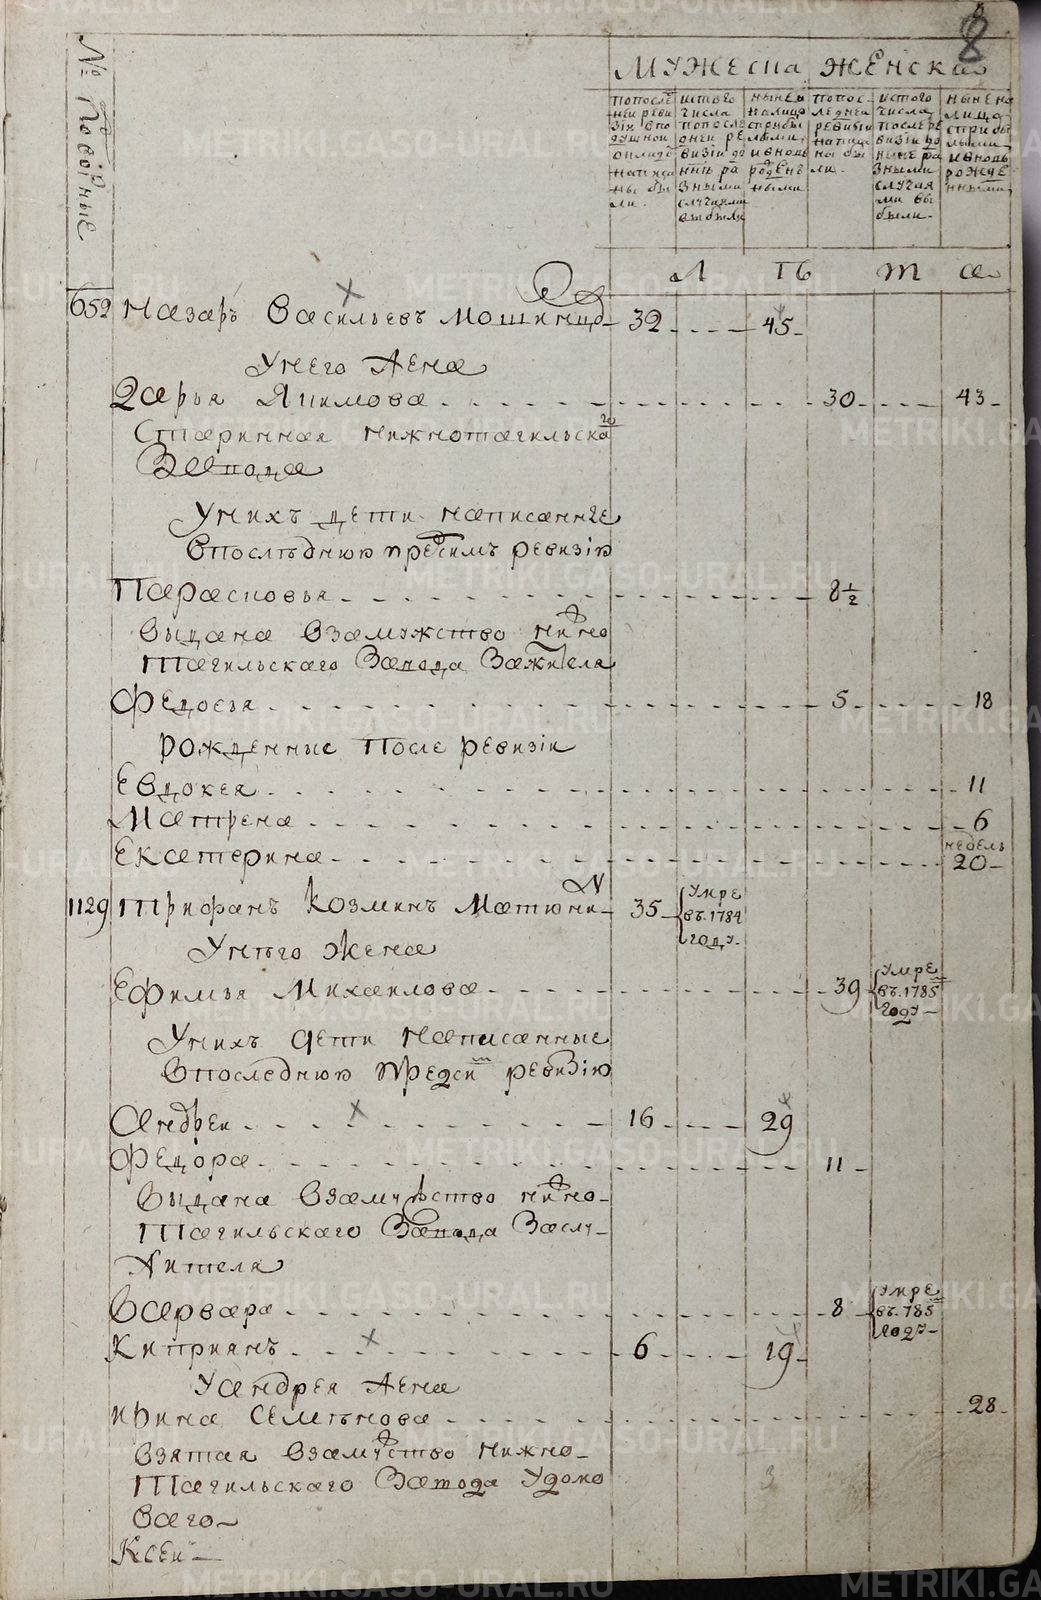 8
№ Подворные
МУЖЕСКА ЖЕНСКА
попосле
ней реви
зіи впо
душной
окладъ
написа
ны бы
ли.
истого
числа
попосле
дней ре
визіи до
ныне ра
зными
случаями
выбыли
ныне в
налицо
сприбы
лыми
ивновь
рожден
ными
попос-
ледней
ревизіи
написа
ны бы
ли.
истого
числа
после ре
визіи до
ныне ра
зными
случая
ми вы
были.
ныне на
лицо
сприбы
лыми
ивновь
рожде
нными
Л ТЬ Т а
652 Назаръ Васильевъ Мошинцо 32 45
Унего жена
Дарья Якимова 30 43
Старинная нижнотагильскаго
Завода
Унихъ дети написанные
Впоследнюю предсимъ ревизію
Парасковья 8 1/2
Выдана Взамужство нижно
Тагильскаго Завода Зажителя
Федосья 5 18
Рожденные после ревизіи
Евдокея 11
Матрена 6
недель
Екатерина 20
1129 Трифанъ Козминъ Матюни 35 умре
въ 1784
году
Унего жена
Ефимья Михаилова 39 умре
въ 1785
году
Унихъ дети написанные
Впоследнюю предсим ревизію
Андреи 16 29
Федора 11
Выдана Взамужство нижно-
Тагильскаго Завода Заслу-
жителя
Варвара 8 умре
въ 785
году
Киприянъ 6 19
Уандрея жена
Ирина Семенова 28
Взятая Взамужство нижно-
Тагильскаго Завода Удомо
Ваго
Ксеи
3
METRIKI.GASO-URAL.RU